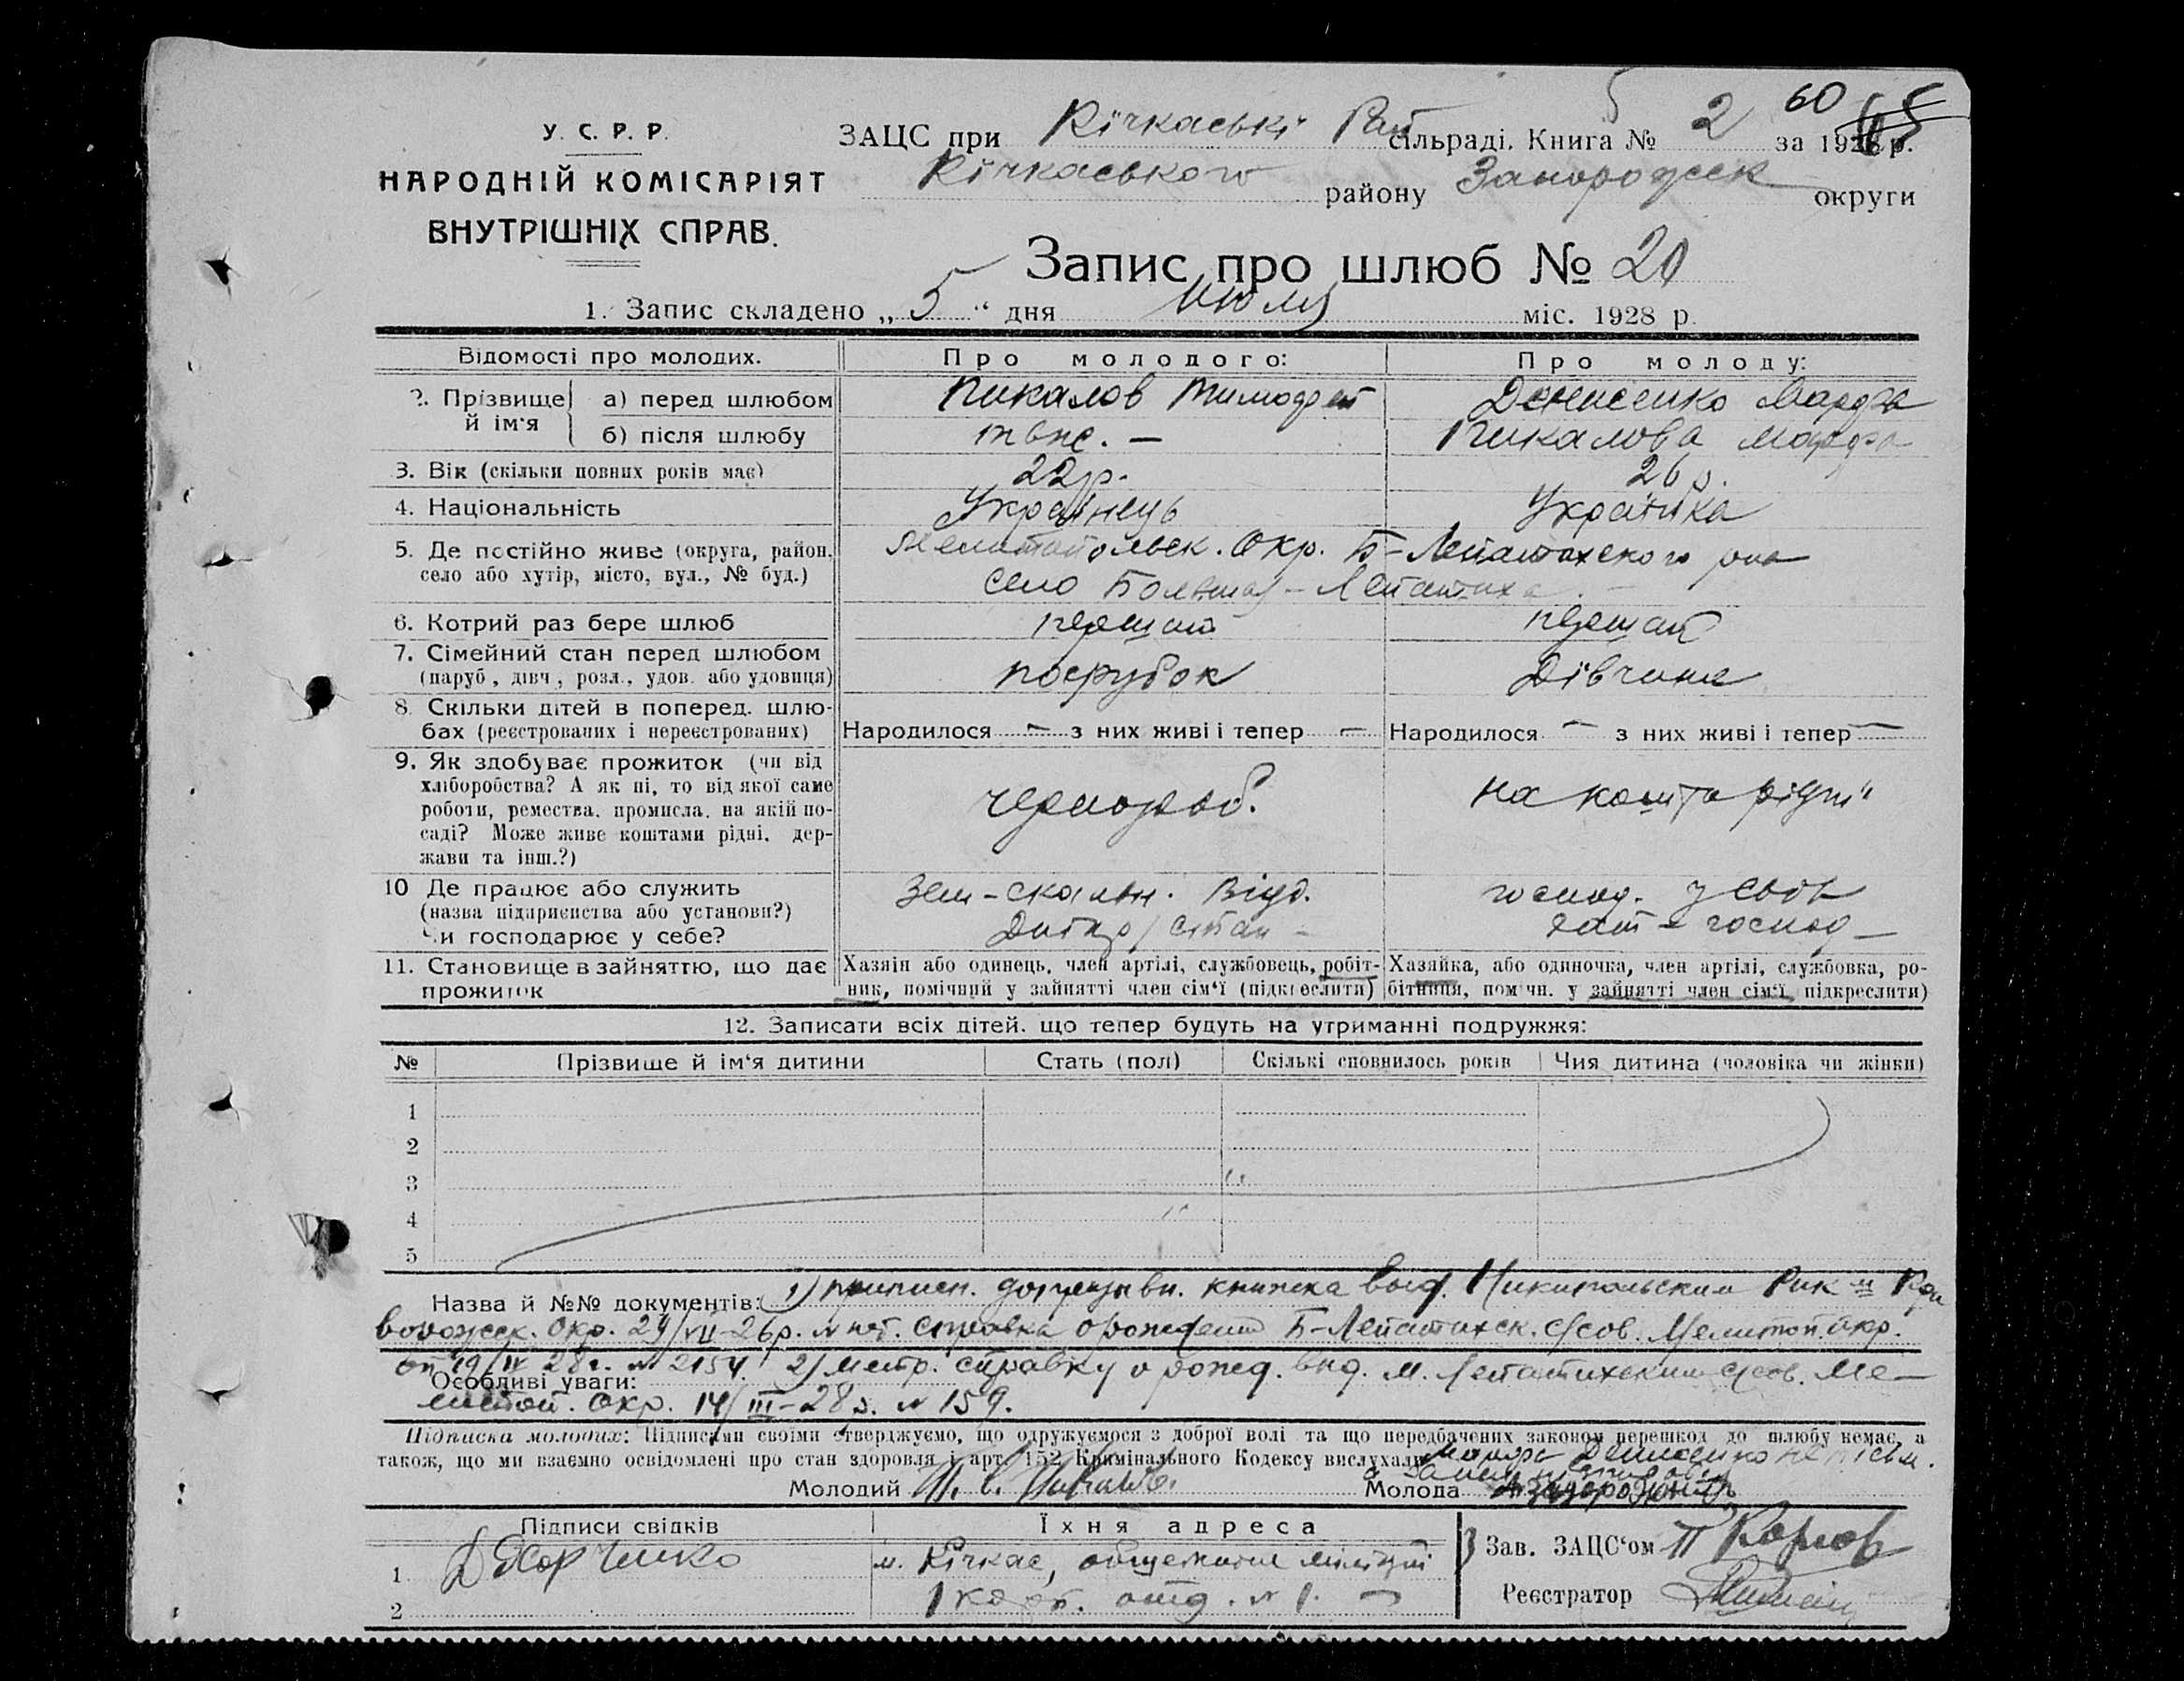 У. С. Р. Р.
НАРОДНІЙ КОМІСАРІЯТ
ВНУТРІШНІХ СПРАВ.
5 2 60 65
ЗАЦС при Кічкаські Рай сільраді. Книга № 2 за 1928 р.
Кічкаського району Запорожск округи
Запис про шлюб № 20
1. Запис складено „ 5 “ дня июля міс. 1928 р.
Відомості про молодих. Про молодого: Про молоду:
2. Прізвище й ім‘я а) перед шлюбом Пикалов Тимофей Денисенко Марфа
б) після шлюбу тоже. — Пикалова Марфа
3. Вік (скільки повних років має) 22 р. 26 р.
4. Національність Українець Українка
5. Де постійно живе (округа, район, село або хутір, місто, вул., № буд.) Мелитопольск. Окр. Б-Лепатихского рна
село Большая-Лепатиха
6. Котрий раз бере шлюб перший перший
7. Сімейний стан перед шлюбом (паруб., дівч., розл., удов. або удовиця) парубок Дівчина
8. Скільки дітей в поперед. шлюбах (реєстрованих і нереєстрованих) Народилося — з них живі і тепер — Народилося — з них живі і тепер —
9. Як здобуває прожиток (чи від
хліборобства? А як ні, то від якої саме
роботи, ремества, промисла, на якій по-
саді? Може живе коштами рідні, дер-
жави та інш.?)
чернораб. на кошти рідні
10 Де працює або служить
(назва підприємства або установи?)
Чи господарює у себе?
Зем-скальн. Відд. господ. у своїй
11. Становище в зайняттю, що дає прожиток
Хазяїн або одинець, член артілі, службовець, робіт-
ник, помічний у зайнятті член сім‘ї (підкреслити)
Хазяйка, або одиночка, член артілі, службовка, ро-
бітниця, помічн. у зайнятті член сім‘ї, підкреслити)
12. Записати всіх дітей, що тепер будуть на утриманні подружжя:
№ Прізвище й ім‘я дитини Стать (пол) Скількі сповнилось років Чия дитина (чоловіка чи жінки)
1
2
3
4
5
Назва й №№ документів: 1) приписн. допризывн. книжка выд. Никипольским Рик
Окр. 29/VII-26 р. справка о рождении Б-Лепатихск. с/сов. Мелитоп. окр.
от 19/IV 28 г. № 2154. 2) метр. справку о рожд. выд. М. Лепатихским с/сов. Ме-
Особливі уваги:
литоп. Окр. 14/III-28 р. № 159.
Підписка молодих: Підписями своїми стверджуємо, що одружуємося з доброї волі та що передбачених законом перешкод до шлюбу немає, а
також, що ми взаємно освідомлені про стан здоровля і арт. 152 Кримінального Кодексу вислухали.
Молодий Молода
Підписи свідків Їхня адреса
1 м. Кічкас, общежитие міліції
2
Зав. ЗАЦС‘ом
Реєстратор